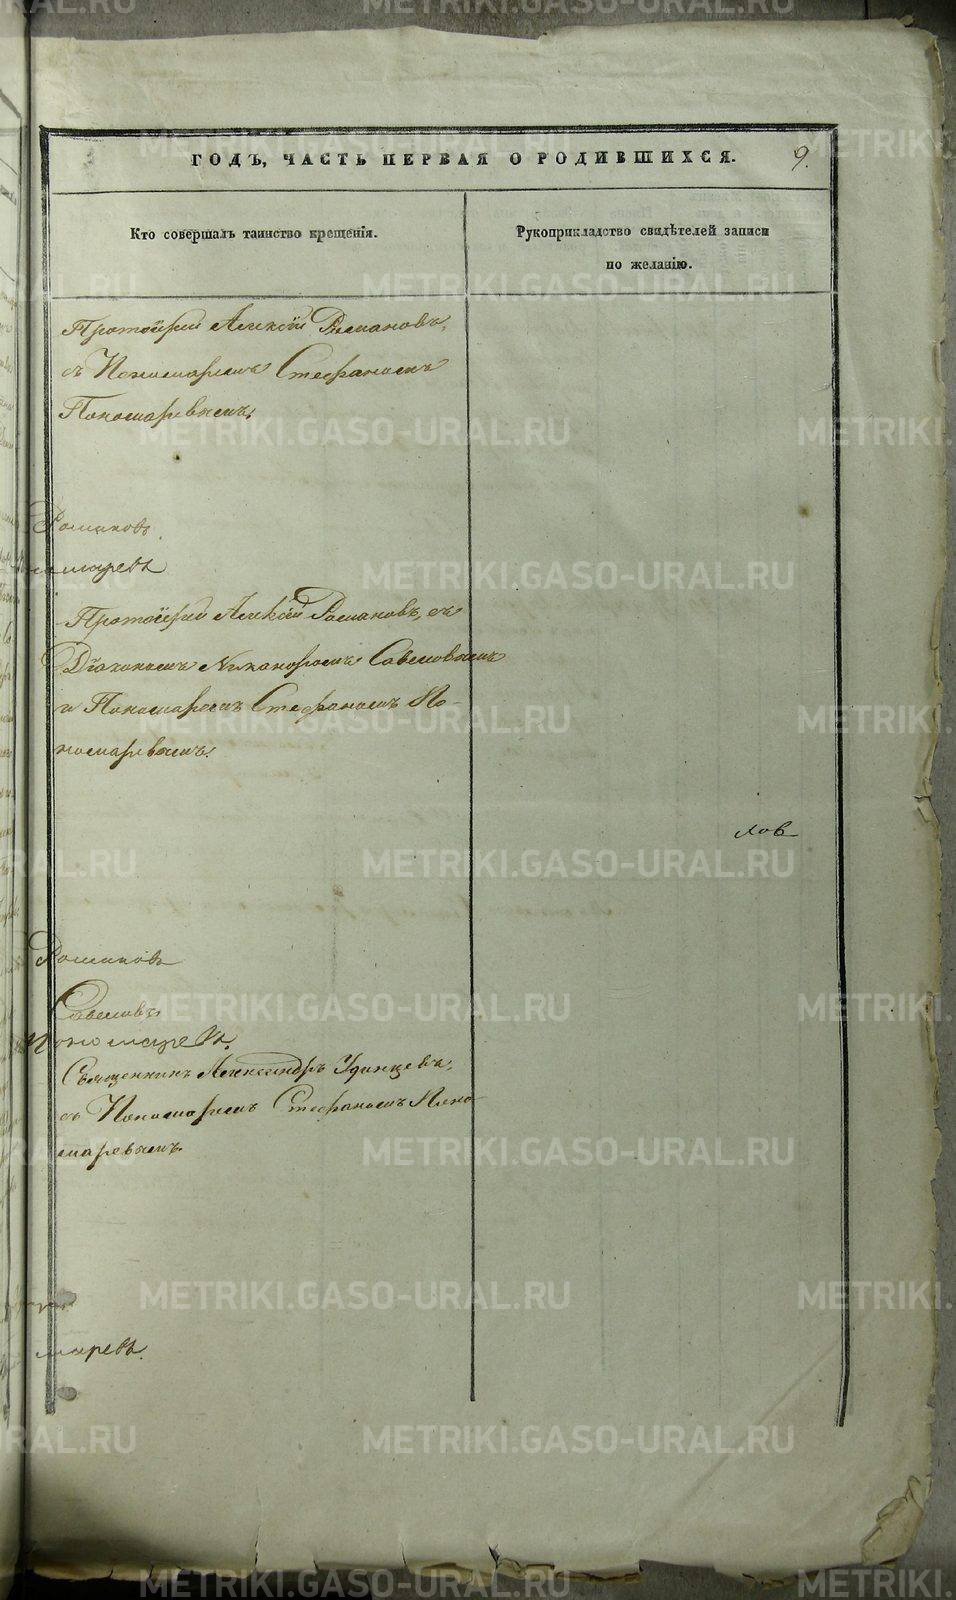 ГОДЪ, ЧАСТЬ ПЕРВАЯ О РОДИВШИХСЯ.
9.
Кто совершалъ таинство крещенія.
Рукоприкладство свидѣтелей записи
по желанію.
Протоіерей Алексій Романовъ,
съ Пономаремъ Стефаномъ
Пономаревымъ.
Романовъ
маревъ
Протоіерей Алексій Романовъ, съ
Діакономъ Никаноромъ Савеловымъ
и Пономаремъ Стефаномъ По-
номаревымъ.
ков
Романовъ
Савеловъ
Пономаревъ.
Священникъ Александръ Удинцевъ,
съ Пономаремъ Стефаномъ Поно-
маревымъ.
маревъ.
METRIKI.GASO-URAL.RU